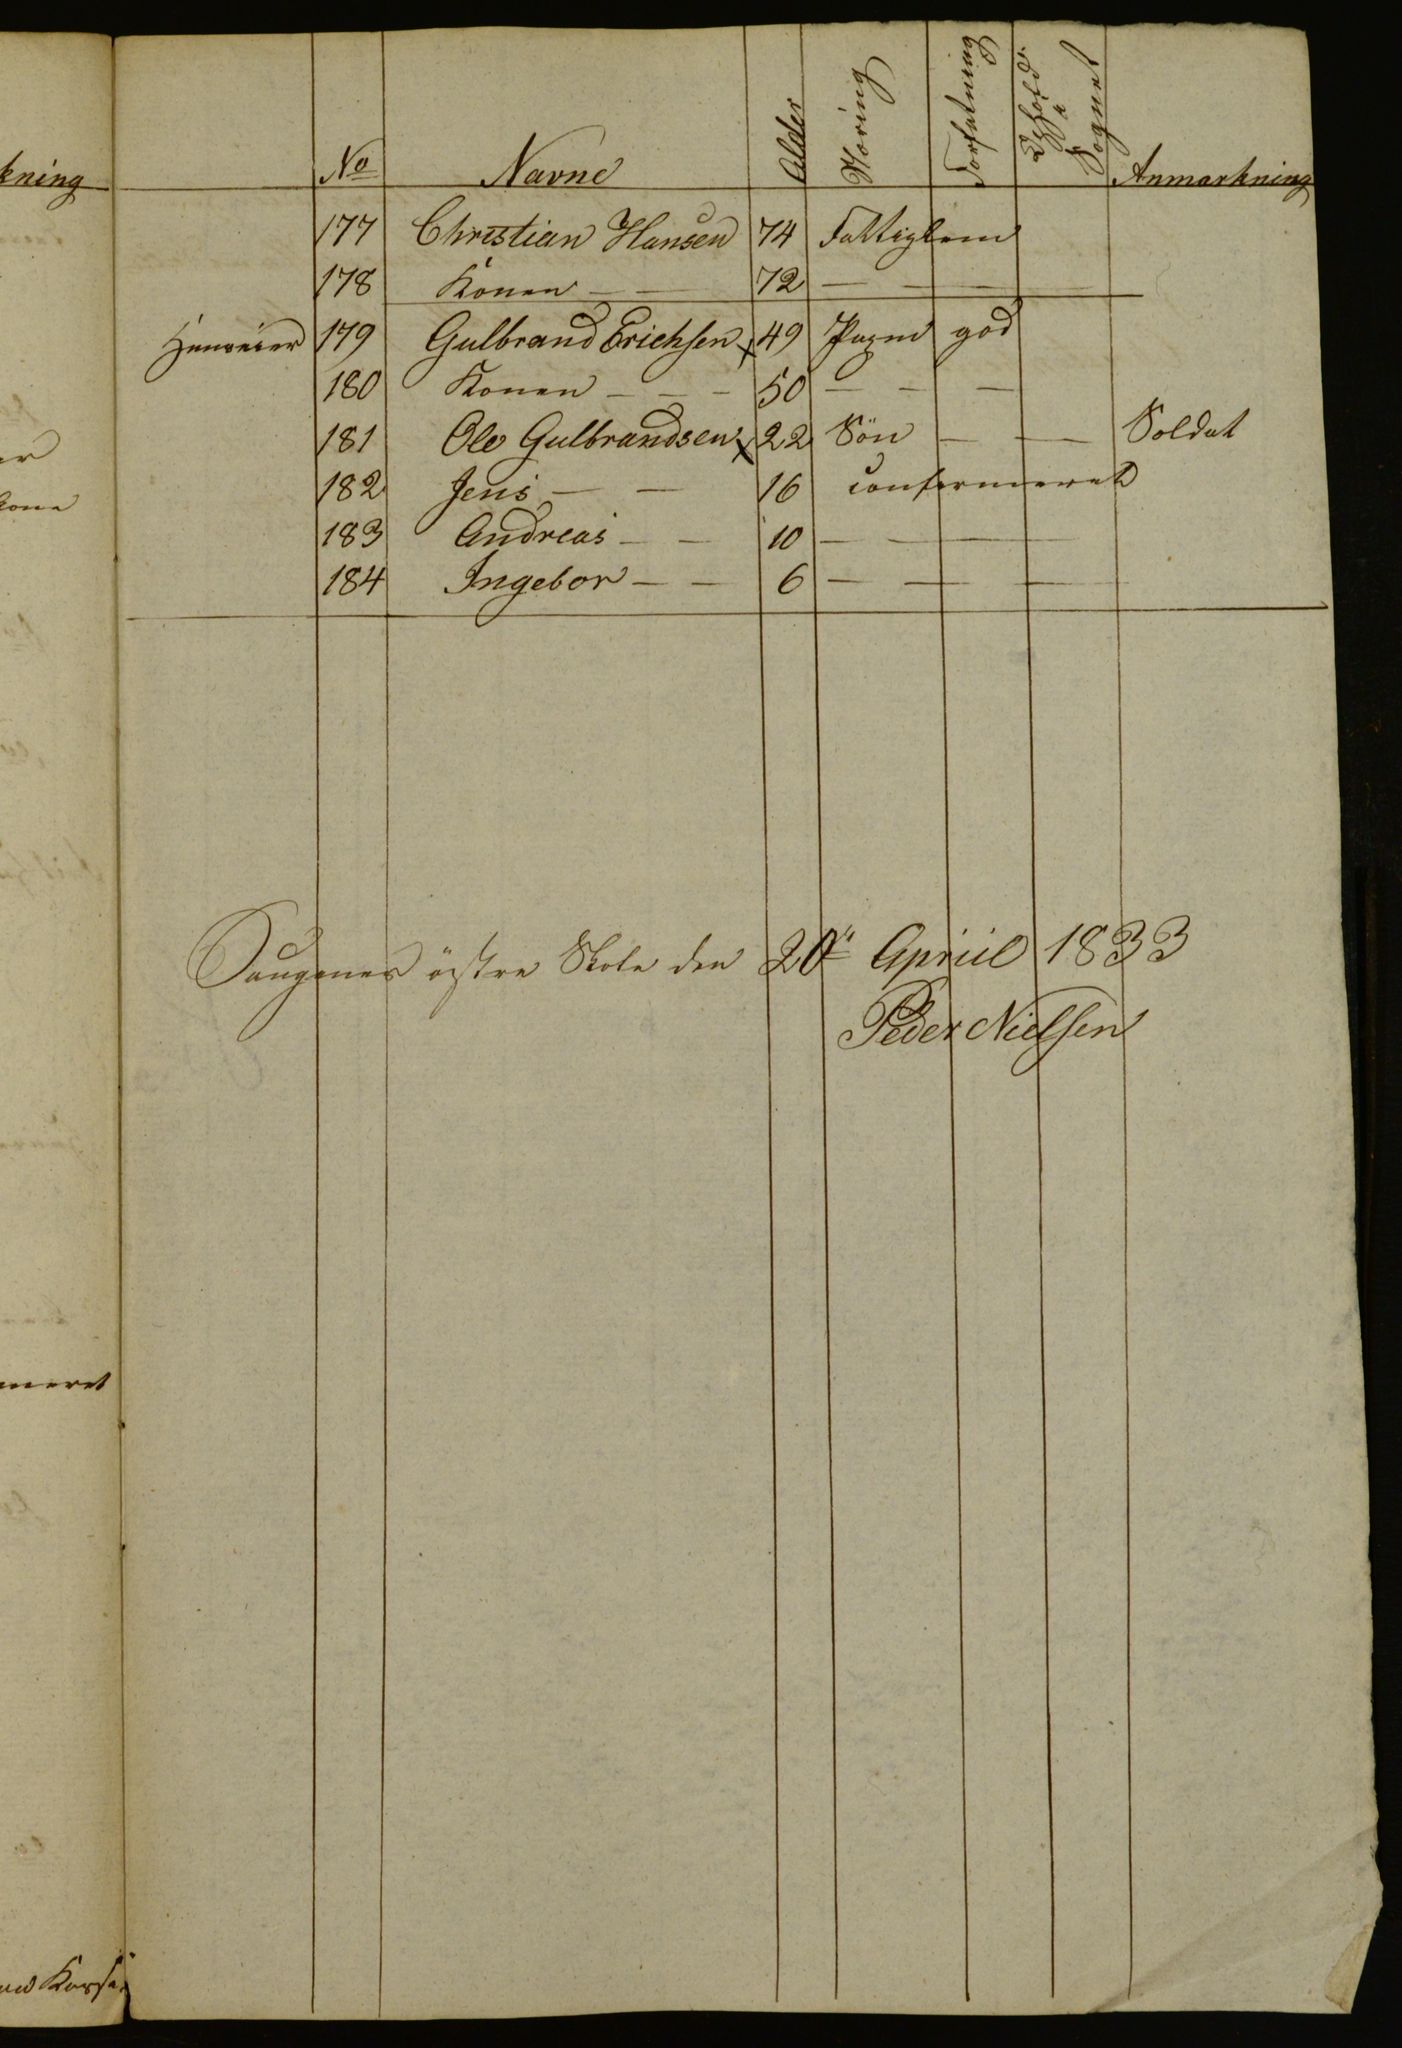 kning
No Navne Alder Næring Forfatning Ophold i Sognet Anmærkning
177 Christian Hansen 74 Fattiglem
178 Konen — — 72 — — — —
179 Gulbrand Erichsen x 49 god
180 Konen — — — 50 — — —
181 Ole Gulbrandsen x 22 Sön — — Soldat
182 Jens — — 16 confermeret
183 Andreas — — 10 — — — —
184 Ingebor — — 6 — — —
östre Skole den 20de April 1833
Peder Nielsen
meret